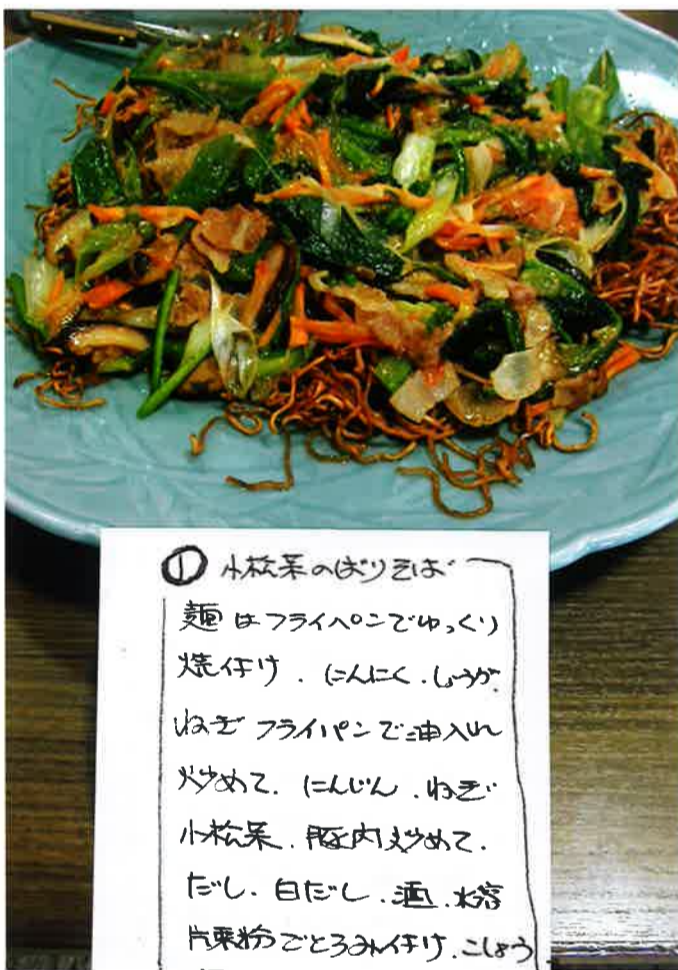 ① 小松菜のばりそば
麺はフライペンでゆっくり
焼付け．にんにく．しょうが．
ねぎ フライパンで油入れ
炒めて．にんじん．ねぎ
小松菜．豚肉炒めて．
だし．白だし．酒．水溶
片栗粉でとろみ付け．こしょう